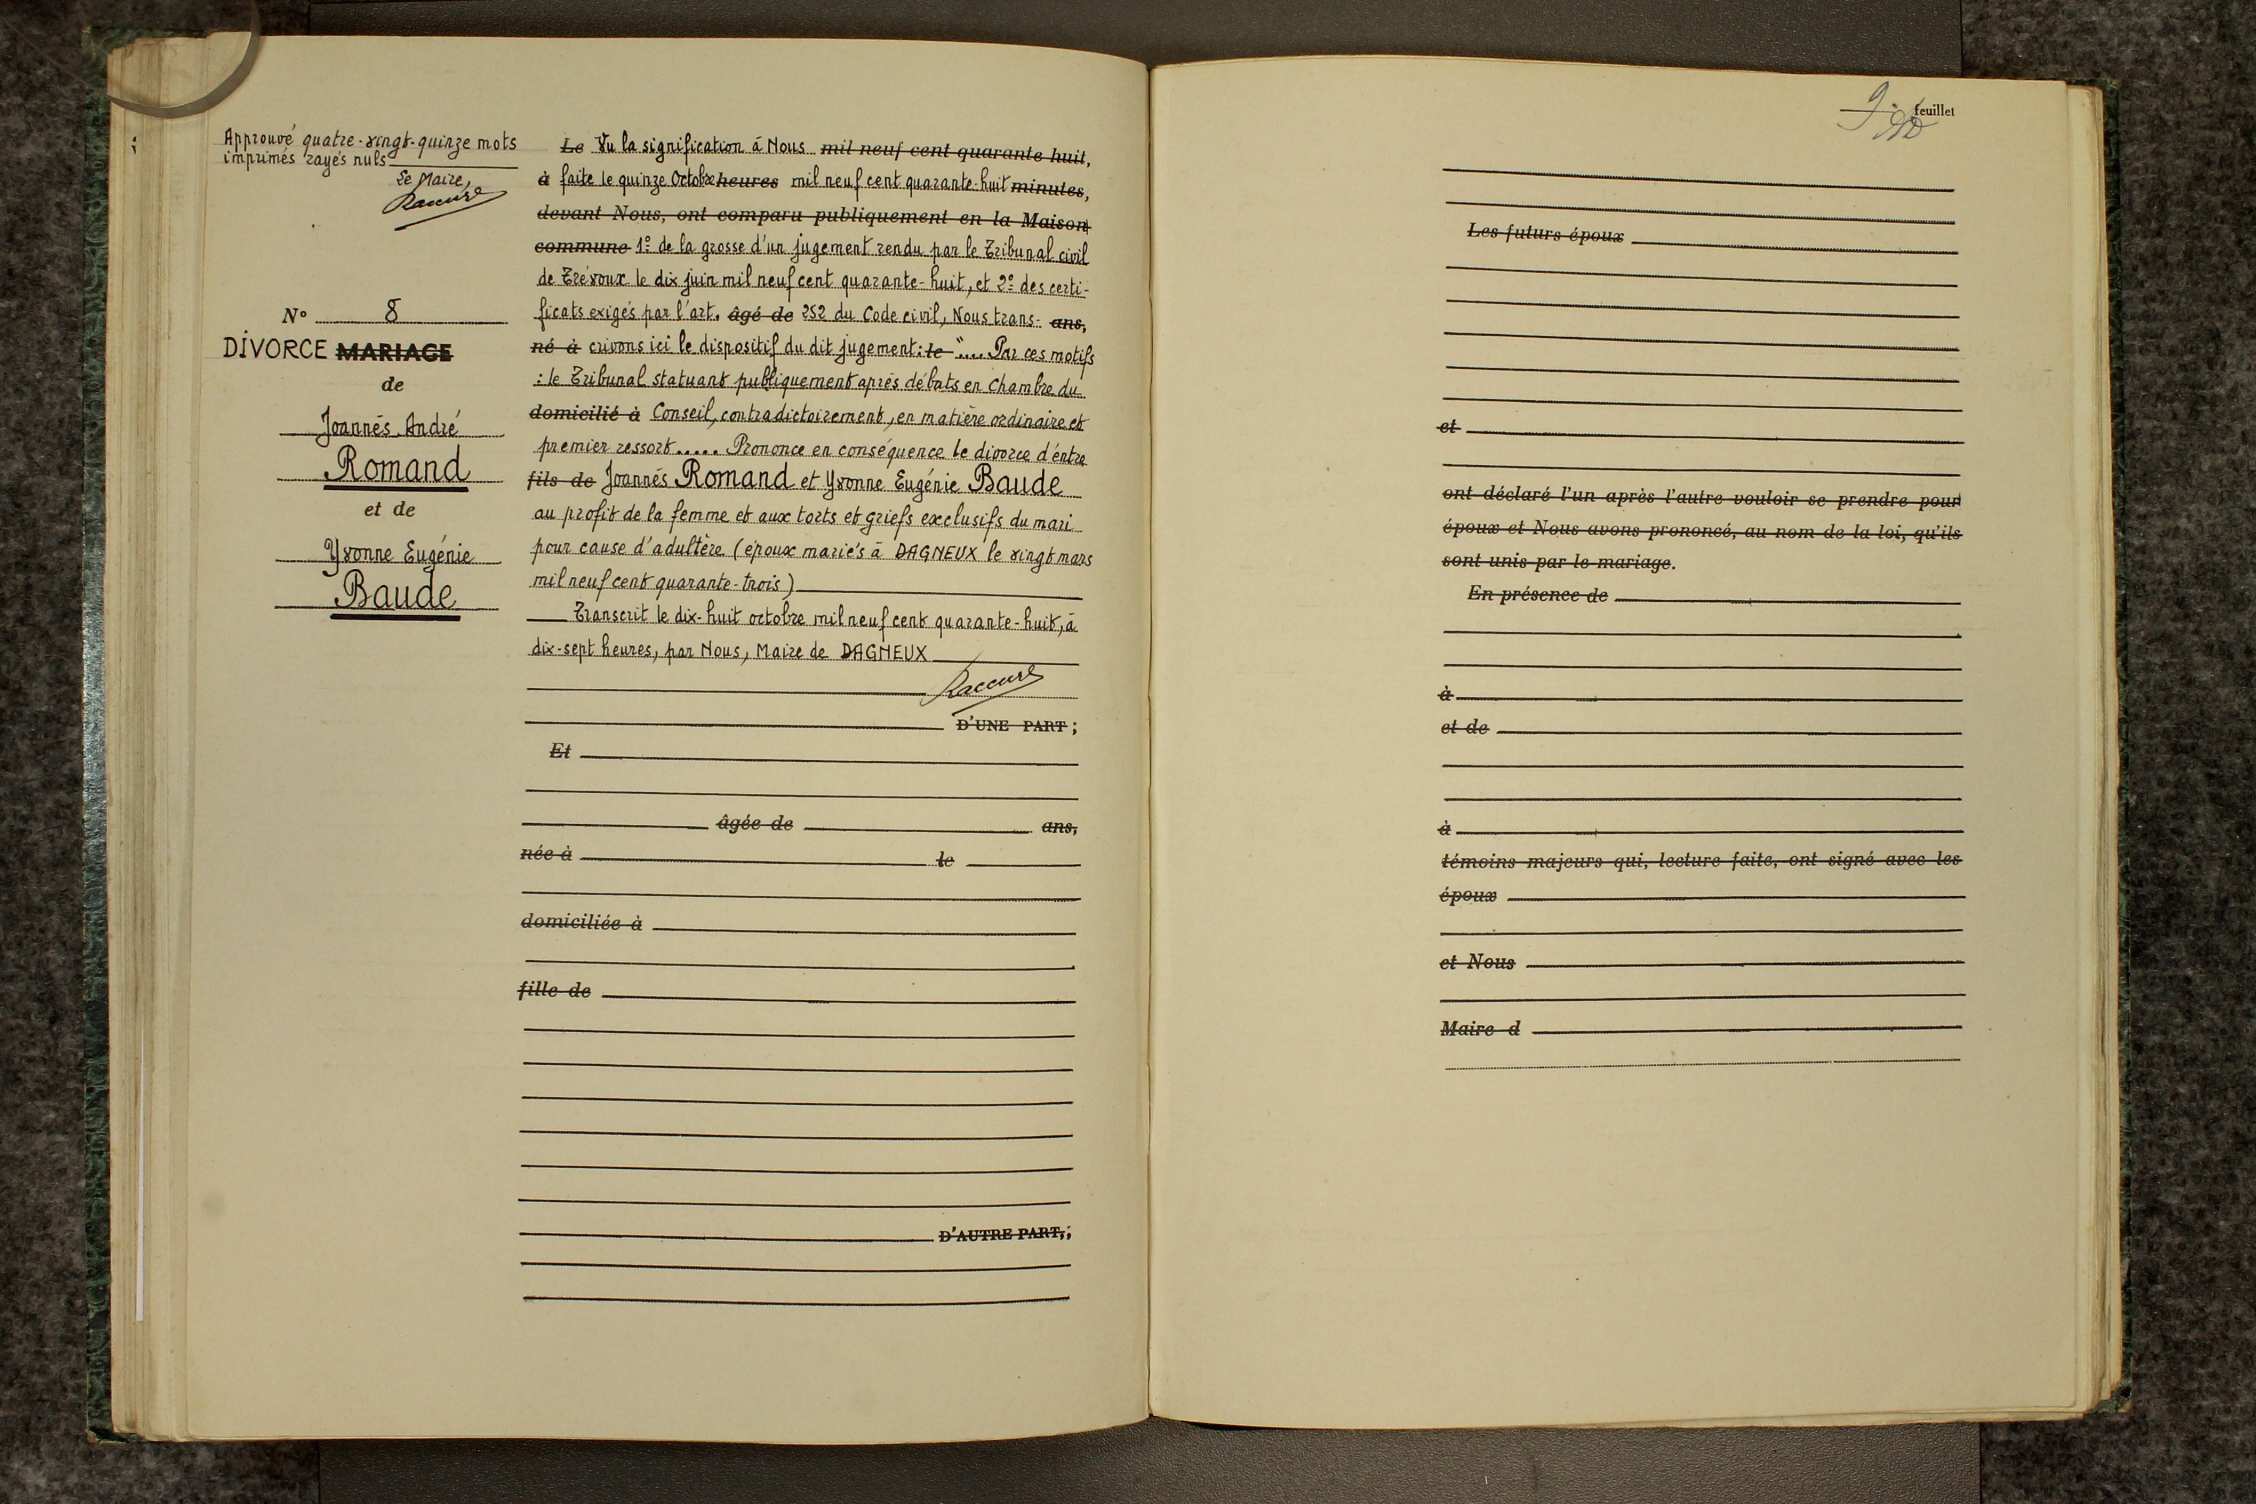 Approuvé quatre-vingt-quinze mots
imprimés rayés nuls
Le Maire,
Raccurt
N° 8
DIVORCE MARIAGE
de
Joannès André
Romand
et de
Yvonne Eugénie
Baude
Le Vu la signification à Nous mil neuf cent quarante huit,
à faite le quinze Octobre heures mil neuf cent quarante-huit minutes,
devant Nous, ont comparu publiquement en la Maison
commune 1° de la grosse d'un jugement rendu par le Tribunal civil
de Trévoux le dix juin mil neuf cent quarante-huit, et 2° des certi-
ficats exigés par l'art. âgé de 252 du Code civil, Nous trans- ans,
né à crivons ici le dispositif du dit jugement: le ".... Par ces motifs
: le Tribunal statuant publiquement après débats en Chambre du
domicilié à Conseil, contradictoirement, en matière ordinaire et
premier ressort..... Prononce en conséquence le divorce d'entre
fils de Joannès Romand et Yvonne Eugénie Baude
au profit de la femme et aux torts et griefs exclusifs du mari
pour cause d'adultère (époux mariés à DAGNEUX le vingt mars
mil neuf cent quarante-trois)
Transcrit le dix-huit octobre mil neuf cent quarante-huit, à
dix-sept heures, par Nous, Maire de DAGNEUX
Raccurt
D'UNE PART ;
Et
âgée de ans,
née à le
domiciliée à
fille de
D'AUTRE PART, ;
9 feuillet
Les futurs époux
et
ont déclaré l'un après l'autre vouloir se prendre pour
époux et Nous avons prononcé, au nom de la loi, qu'ils
sont unis par le mariage.
En présence de
à
et de
à
témoins majeurs qui, lecture faite, ont signé avec les
époux
et Nous
Maire d